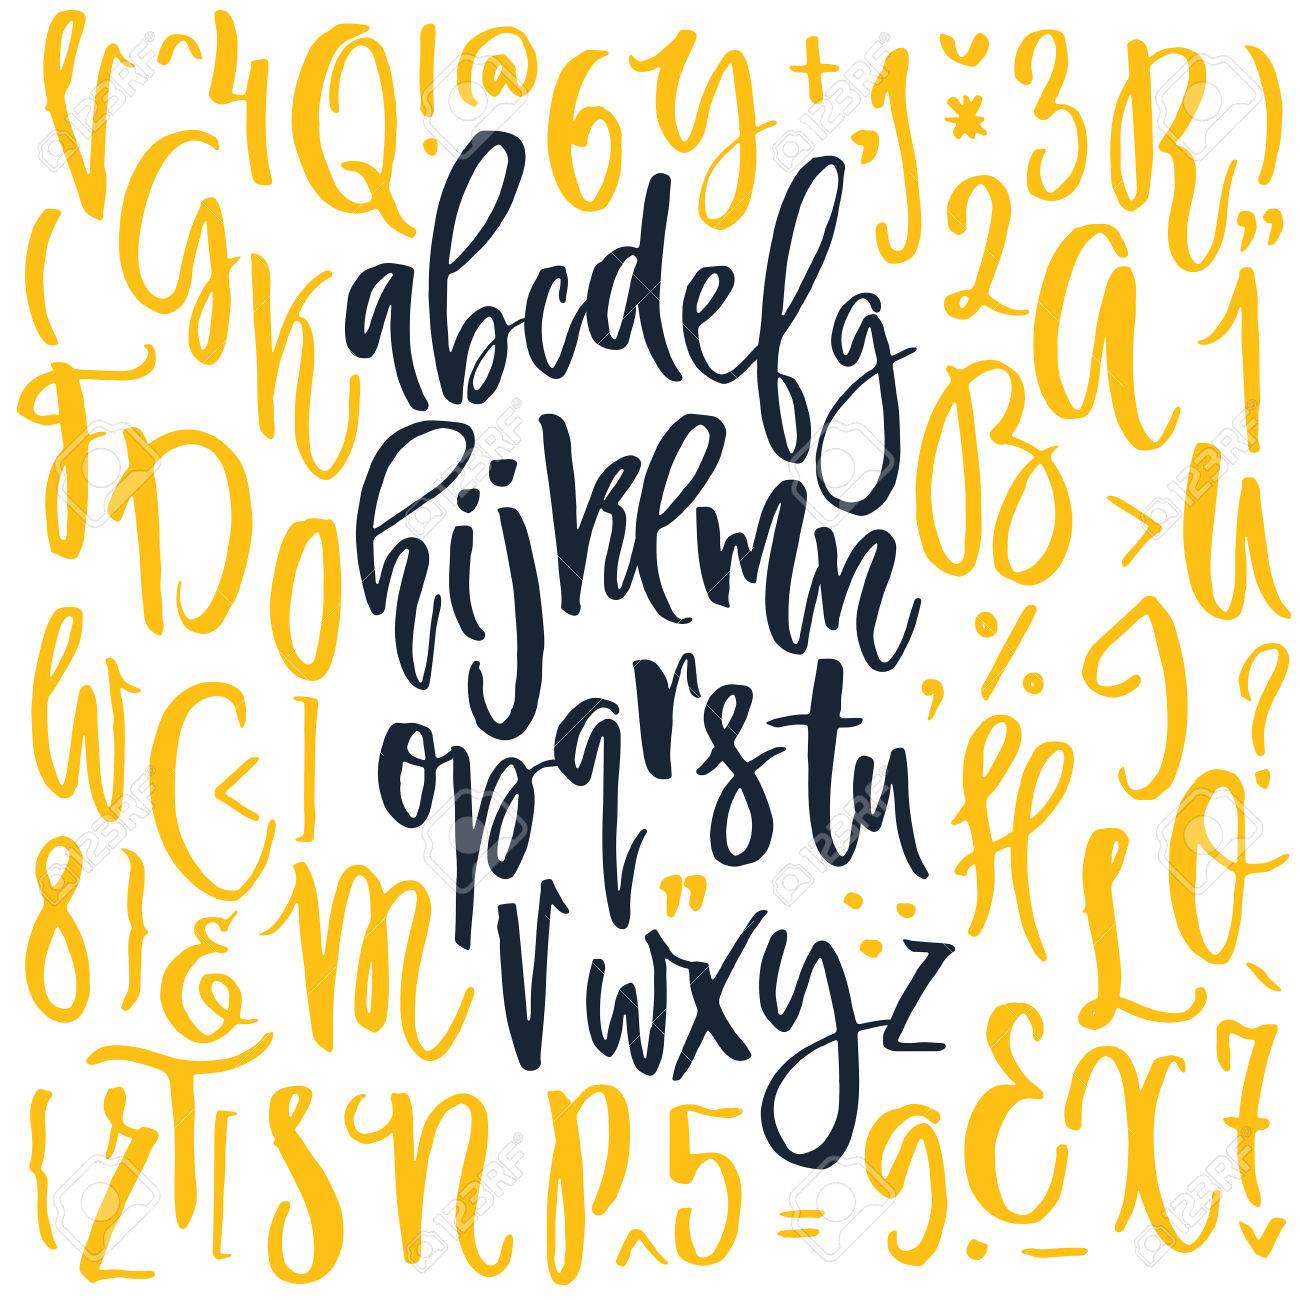 V ^ 4 Q ! @ 6 Y + , J ˇ * 3 R )
G 2 ”
( K A 1
abcdefg
F D B > U
hijklmn
O % I ?
W C < ] , H
opqrstu
8 } & M L O
” vwxyz
{ Z T [ S N P ^ 5 = 9 . E _ X 7 !